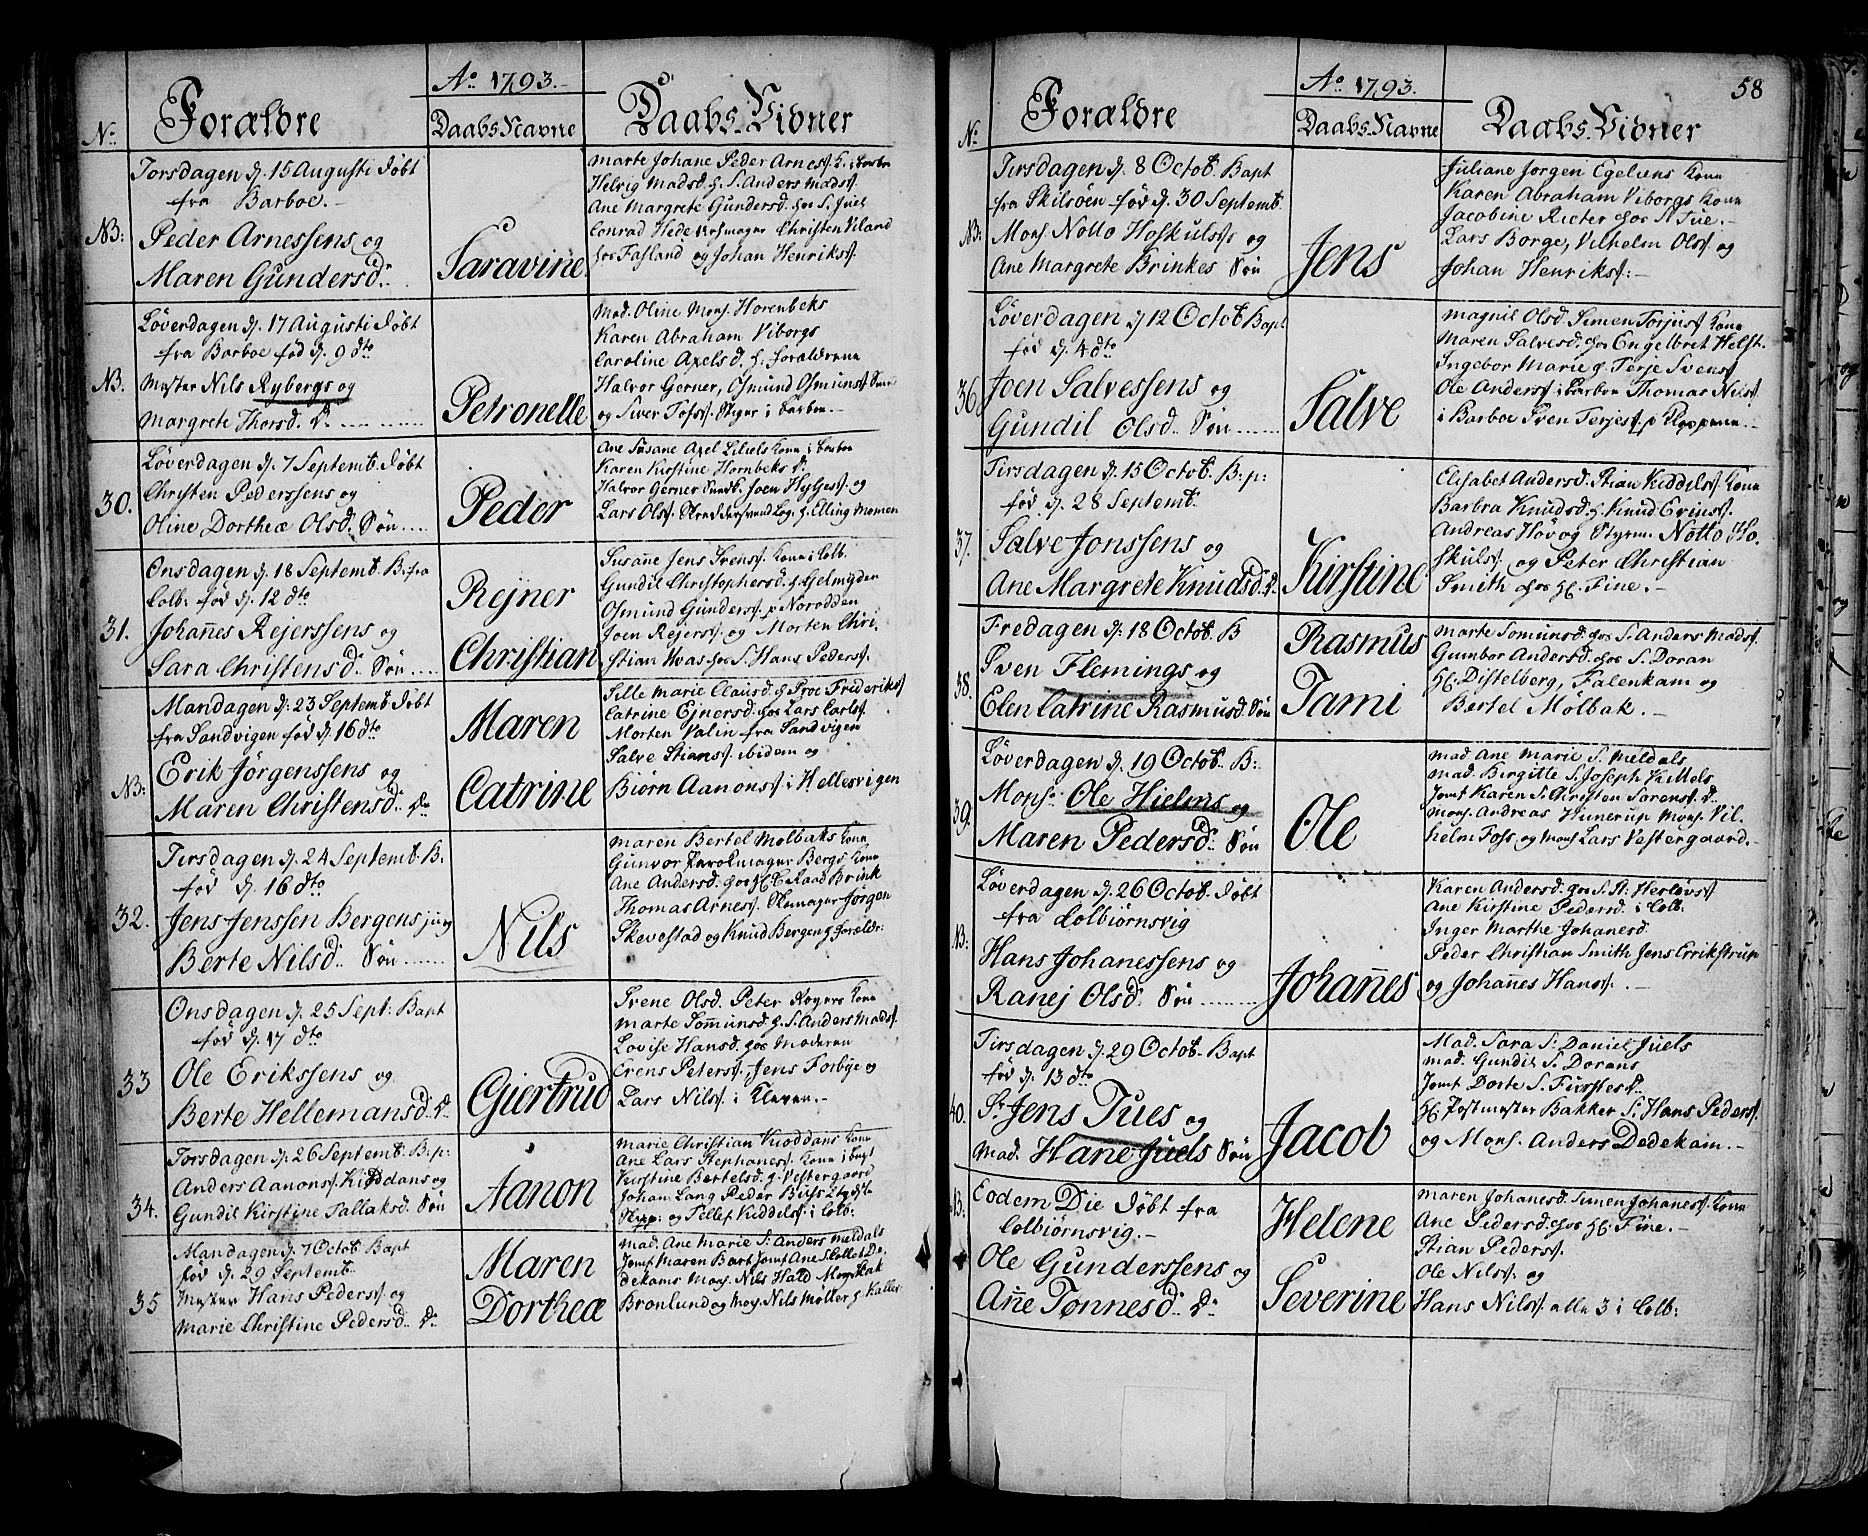 Ao 1793.
No Forældre Daabs Navne Daabs-Vidner
Torsdagen d. 15 Augusti døbt
fra Barboe.
NB:
Peder Arnessens og
Maren Gundersd.
Saravine
Marte Johane Peder Arness.
Helvig Madsd. h. S. Anders Madss.
Ane Margrete Gundersd. hos S. Juel
Conrad Hede Christen Viland
hos Fasland og Johan Henrikss.
Løverdagen d. 17 Augusti døbt
fra Barboe fød d. 9 dto
NB.
Mester Nils Rybergs og
Margrete Thorsd. D.
Petronelle
Mad. Oline Mons. Horenbeks
Karen Abraham Viborgs
Caroline Axelsd. h. forældrene
Halvor Gerner, Osmund Osmunss.
og Siver Tofss. i Barboe.
Løverdagen d. 7 Septemb. døbt
30.
Christen Pederssens og
Oline Dortheæ Olsd. Søn
Peder
Ane Susane Axel Kone i Barboe
Karen Kirstine Hornbeks D.
Halvor Gerner Joen Hylgess. og
Lars Olss. Elling Momen
Onsdagen d. 18 Septemb. B. fra
Colb: fød d. 12 dto
31.
Johañes Rejerssens og
Sara Christensd. Søn
Rejner
Christian
Susañe Jens Svenss. Kone i Colb.
Gundil Christophersd. h. Gelmyden
Osmund Gunderss. p Norodden
Joen Rejerss. og Morten Chri-
stian Hvas hos S. Hans Pederss.
Mandagen d. 23 Septemb. døbt
fra Sandvigen fød d. 16 dto
NB:
Erik Jörgenssens og
Maren Christensd. D.
Maren
Catrine
Sille Marie Clausd. h. Proc Frederikss.
Catrine Ejnersd. hos Lars Carlss.
Morten Valin fra Sandvigen
Salve Stianss. ibidem og
Biørn Aanonss. i Hellesvigen
Tirsdagen d. 24 Septemb. B.
fød d. 16 dto
32.
Jens Jenssen Bergens jun
Berte Nilsd. Søn
Nils
Maren Bertel Molbaks Kone
Gunvor Bergs Kone
Ane Andersd. hos H. C. Raad Brink
Thomas Arness. Skomager Jørgen
Skevestad og Knud Bergen h. forældr:
Onsdagen d. 25 Sept: Bapt
fød d. 17 dto
33
Ole Erikssens og
Berte Hellemansd. D.
Gjertrud
Svene Olsd. Peter Rogers Kone
Marte Somunsd. h. S. Anders Madss.
Lovise Hansd. hos Moderen
Erens Peterss. Jens Forbye og
Lars Nilss. i Kleven.
Torsdagen d. 26 Septemb. B.p:
34.
Anders Aanonss. Kiøddans og
Gundil Kirstine Tallaksd. Søn
Aanon
Marie Christian Kioddans Kone
Ane Lars Stephaness. Kone i bugt
Kirstine Bertelsd. h. Vestergaard
Johan Lang Peder Buss
Skipp: og Tellef Kiddelss. i Colb:
Mandagen d. 7 Octob. Bapt
fød d. 29 Septemb.
35
Mester Hans Pederss. og
Marie Christine Pedersd. D.
Maren
Dortheæ
Mad. Ane Marie S. Anders Meldals
Jomf Maren Bart Jomf Ane S. Collet De-
dekams Mons. Nils Hald
Bronlund og Mons. Nils Møller h. Kaller
Ao 1793.
58
No Forældre Daabs Navne Daabs-Vidner
Tirsdagen d. 8 Octob. Bapt
fra Skilsøen fød d. 30 Septemb.
NB:
Mons. Notto Hoskulss. og
Ane Margrete Brinkes Søn
Jens
Juliane Jorgen Egeliens Kone
Karen Abraham Viborgs Kone
Jacobine Rieter hos S. Tue.
Lars Borge, Vilhelm Olss. og
Johan Henrikss.
Løverdagen d. 12 Octob. Bapt
fød d. 4 dto
36.
Joen Salvessens og
Gundil Olsd. Søn
Salve
Magnil Olsd. Simen Torjuss. Kone
Maren Salvesd. hos Engelbret Helst.
Ingebor Marie g. Terje Svenss.
Ole Anderss. i Barboe Thomas Nilss.
i Barboe Sven Terjess. p
Tirsdagen d. 15 Octob. B:p:
fød d. 28 Septemb.
37.
Salve Jonssens og
Ane Margrete Knudsd. D.
Kirstine
Elisabet Andersd. Stian Kiddelss. Kone
Barbra Knudsd. h. Knud Evinss.
Andreas Høv og Styrm. Notto Ho-
skulss. og Peter Christian
Smith hos H. Fine.
Fredagen d. 18 Octob. B
38.
Sven Flemings og
Elen Catrine Rasmusd. Søn
Rasmus
Tami
Marte Somunsd. hos S. Anders Madss.
Gumbor Andersd. hos S. Doran
H. Distelberg, Falenkam og
Bertel Mölbak.
Løverdagen d. 19 Octob. B:
39.
Mons. Ole Hielms og
Maren Pedersd. Søn
Ole
Mad. Ane Marie S. Meldals
Mad. Birgitte S. Joseph Kittels
Jomf Karen S. Christen Sørenss. D.
Mons. Andreas Hunerup Mons. Vil-
helm Foss og Mons. Lars Vestergaard.
Løverdagen d. 26 Octob. døbt
fra Colbiørnsvig
NB:
Hans Johanessens og
Ranej Olsd. Søn
Johañes
Karen Andersd. hos S. St. Herløvss.
Ane Kirstine Pedersd. i Colb:
Inger Marthe Johanesd.
Peder Christian Smith Jens Errikstrup
og Johañes Hanss.
Tirsdagen d. 29 Octob. Bapt
fød d. 13 dto
40.
Sr. Jens Tues og
Mad. Hane Juels Søn
Jacob
Mad. Sara S. Daniel Juels
Mad. Gundil S. Dorans
Jomf Dorte S. Fürstes D.
H. Postmester Bakker S. Hans Pederss.
og Mons. Anders Dedekam.
NB:
Eodem Die døbt fra
Colbiørnsvig.
Ole Gunderssens og
Añe Tønnesd. D.
Helene
Severine
Maren Johanesd. Simen Johaness. Kone
Ane Pedersd. hos H. Fine.
Stian Pederss.
Ole Nilss. og
Hans Nilss. alle 3 i Colb: